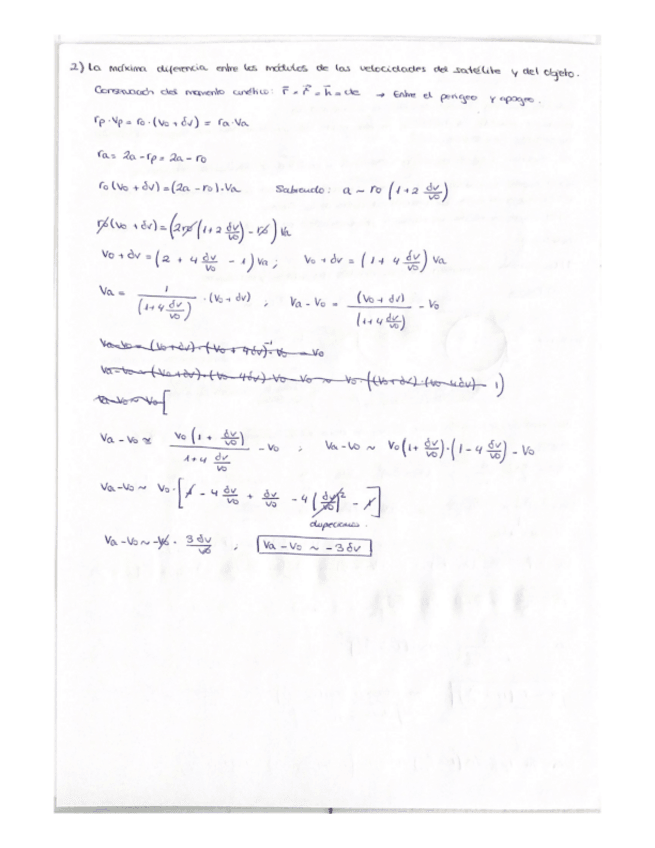 2) La máxima diferencia entre los módulos de las velocidades del satélite y del objeto.
Conservación del momento cinético: r⃗ × r⃗ = h⃗ = cte → Entre el perigeo y apogeo.
rp · Vp = r0 · (V0 + δv) = ra · Va
ra = 2a - rp = 2a - r0
r0 (V0 + δv) = (2a - r0) · Va Sabiendo: a ~ r0 (1 + 2 δv/V0)
r0 (V0 + δv) = (2r0 (1 + 2 δv/V0) - r0) Va
V0 + δv = (2 + 4 δv/V0 - 1) Va ; V0 + δv = (1 + 4 δv/V0) Va
Va = 1/(1 + 4 δv/V0) · (V0 + δv) , Va - V0 = (V0 + δv)/(1 + 4 δv/V0) - V0
Va - V0 = (V0 + δv) · (V0 + 4δv)⁻¹ · V0 - V0
Va - V0 = (V0 + δv) · (V0 - 4δv) V0 - V0 ~ V0 · ((V0 + δv) · (V0 - 4δv) - 1)
Va - V0 ~ V0 [
Va - V0 ≃ V0 (1 + δv/V0)/(1 + 4 δv/V0) - V0 ; Va - V0 ~ V0 (1 + δv/V0) · (1 - 4 δv/V0) - V0
Va - V0 ~ V0 · [1 - 4 δv/V0 + δv/V0 - 4 (δv/V0)² - 1]
Va - V0 ~ - V0 · 3 δv/V0 ; Va - V0 ~ - 3 δv